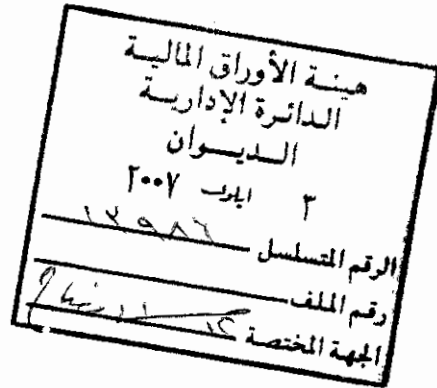 هيئة الأوراق المالية
الدائرة الإدارية
الديوان
٣ ايلول ٢٠٠٧
الرقم المتسلسل ١٣٩٨٦
رقم الملف
الجهة المختصة